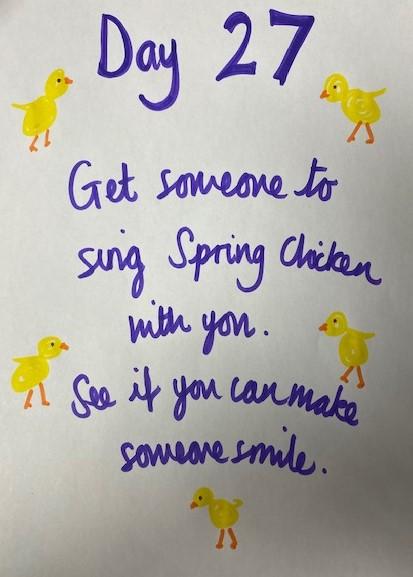 Day 27
Get someone to
sing Spring Chicken
with you.
See if you can make
someone smile.